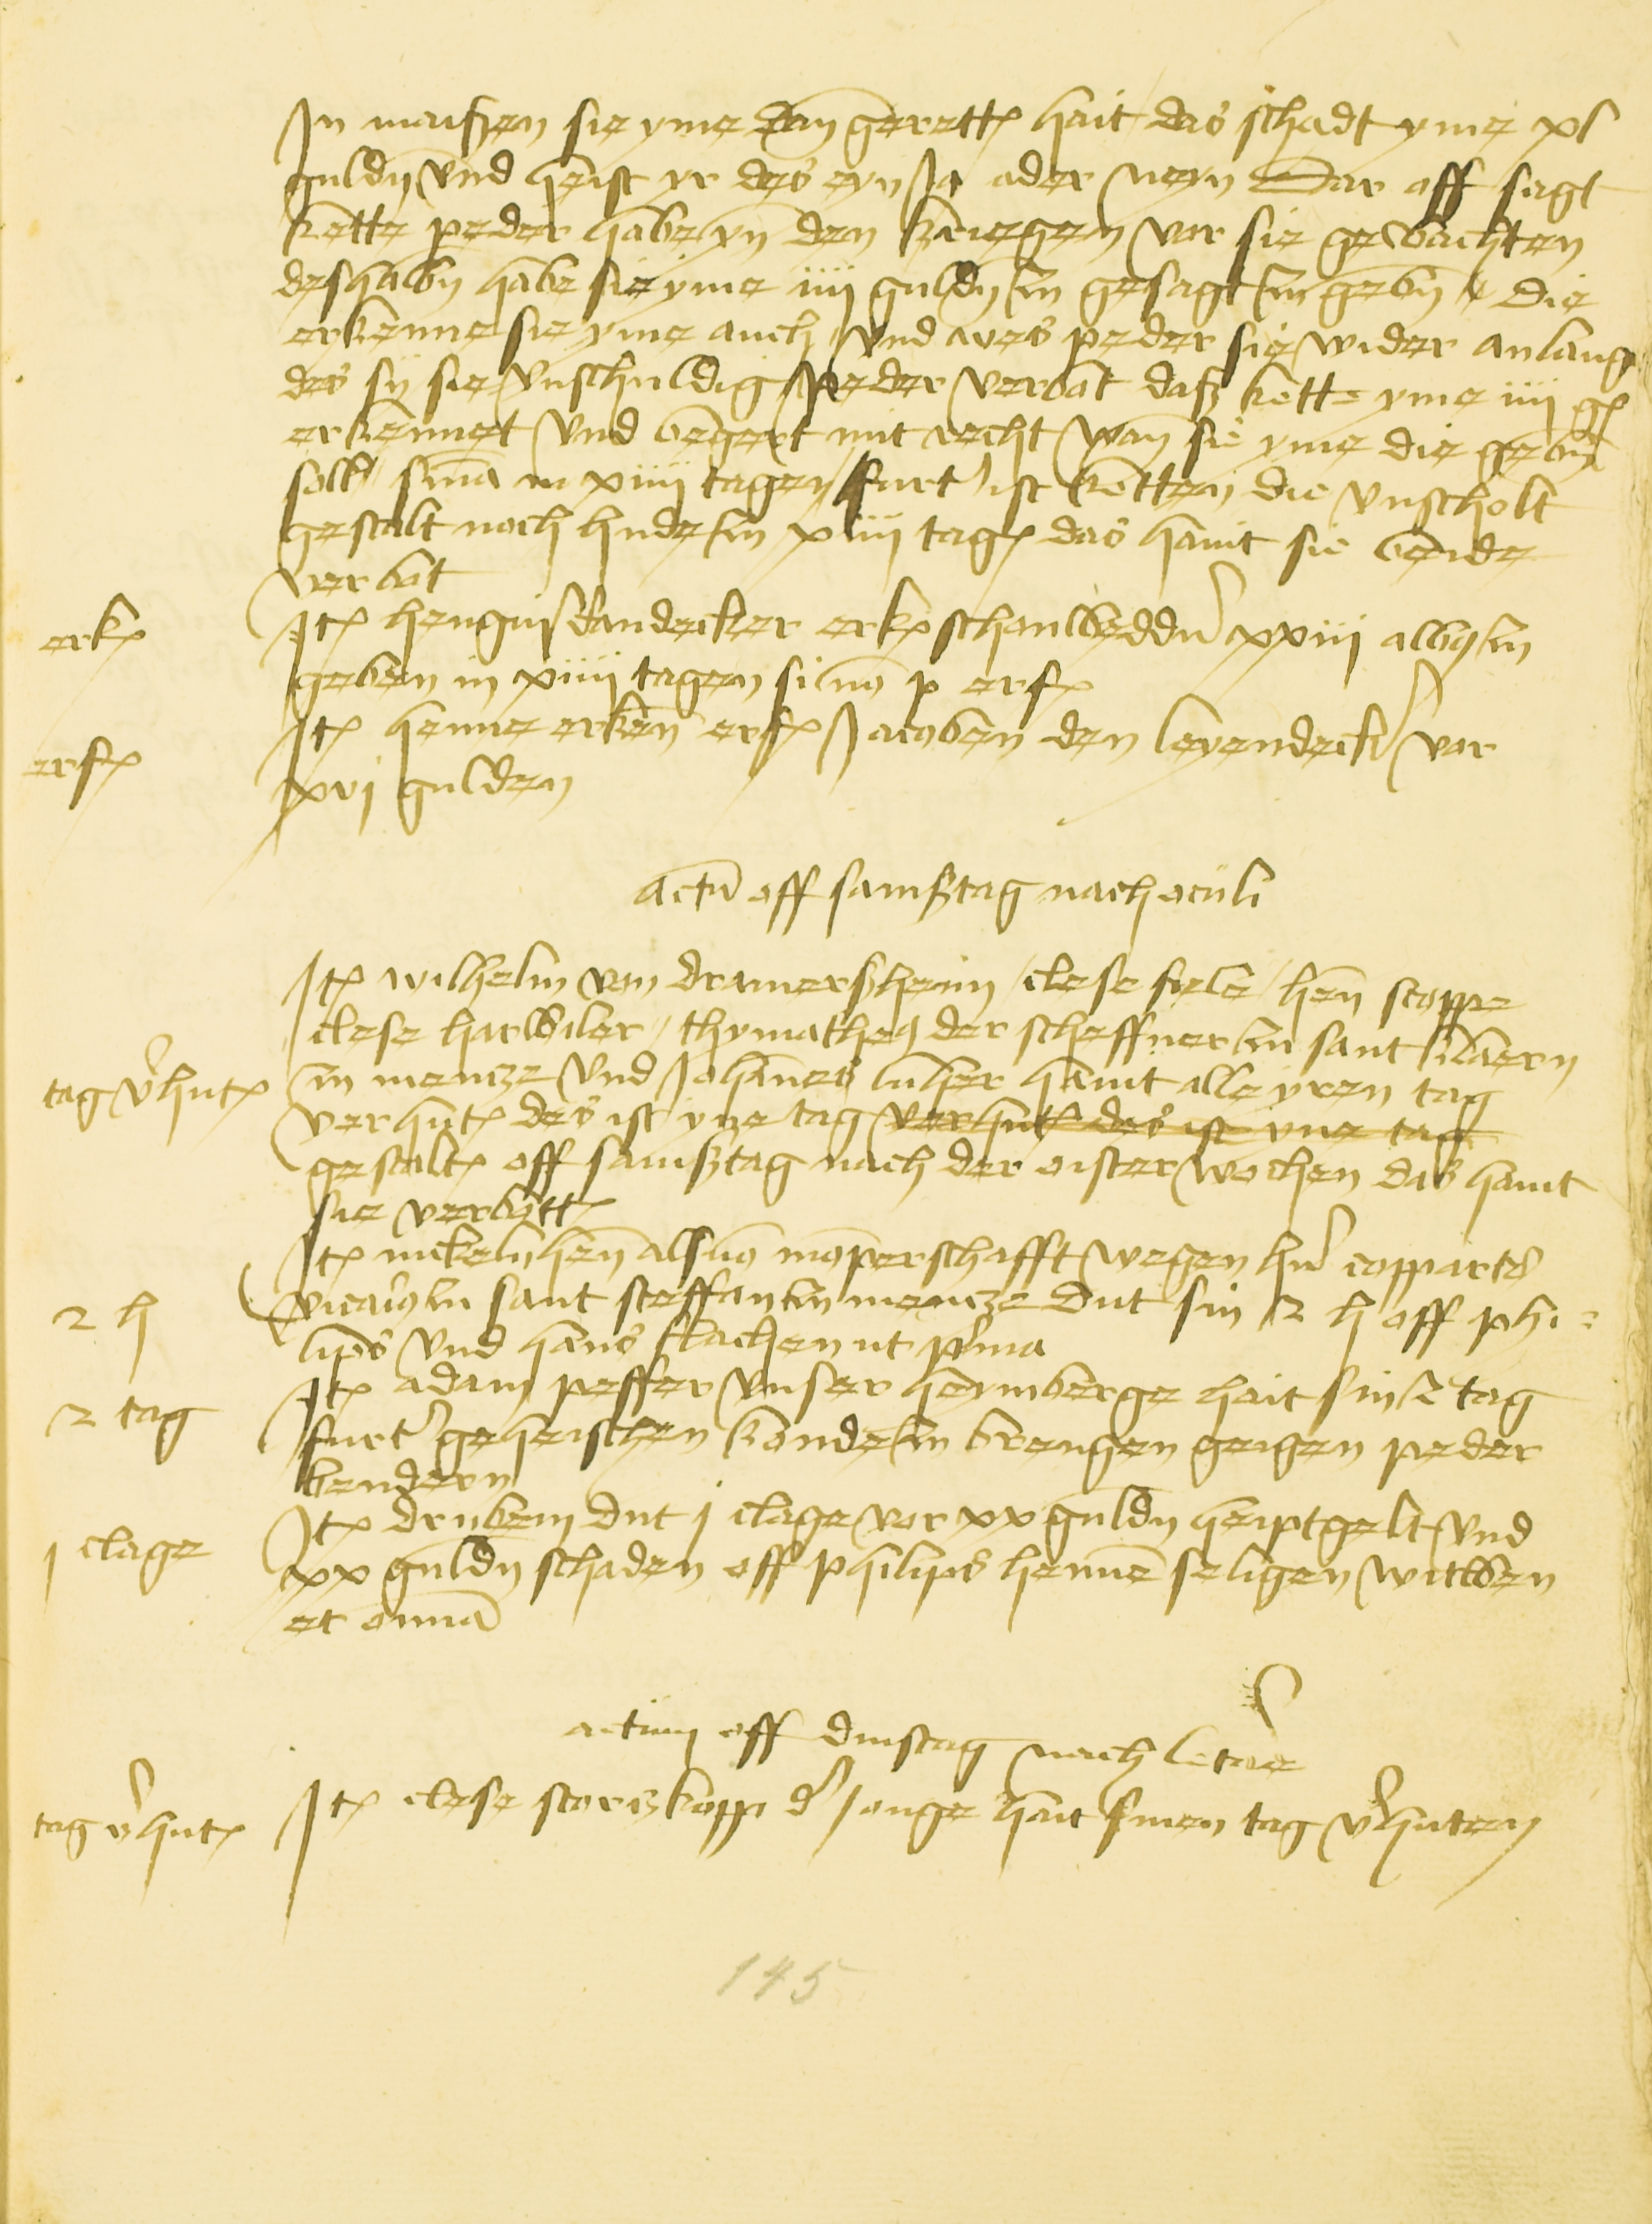 Jn maißen sie yme dan gerett hait das schadt yme xl
guldn vnd heist yr des eyn Ja ader neyn Dar off sagt
kette peder habe yn den kriegen vor sie gewachten
deshalbn habe sie yme iiii guldn zu gesagt zu gebn die
erkenne sie yme auch vnd wes peder sie wider anlang
des sy sie vnschuldig peder verbat daß kett yme iiii gl
erkennet vnd begert mit recht wan sie yme die gebn
sollt sma in xiiii tagen furt ist ketten die vnscholt
gestalt noch hude zu xiiii tag das hant sie beide
verbot
erk Jt hengin dandecker erk schanlbeddn xxiii alb zu
geben in xiiii tagen si no p erf
erf Jt henne erken erf Jacoben den leyendeck vor
xvj gulden
actu off samßtag nach oculi
Jt wilhelm von dramerßheim clese fiele hen stoppe
clese harwiler thymatheq der scheffner zu sant claern
tag v'hut zu mencze vnd Johannes luher hant alle yren tag
verhut des ist yne tag verhut des ist yne tag
gestalt off samßtag nach der oister wochen das hant
sie verbott
Jt nickeln hen als no momperschafft wegen hn coppart
2 h vicario zu sant steffan zu mencze dut sin 2 h off phi=
lips vnd hans flachen ut p'ma
2 tag Jt adam peffer vnser heymberge hait sin 2 tag
furt geheischen konde zu brengen geigen peder
bendern
j clage Jt drubein dut j clage vor xx guldn heiptgelt vnd
xx guldn schaden off philips henne seligen witwen
et omnia
actum off dinstag nach letare
tag v'hut Jt clese storczkopp d' Jonge hait sinen tag v'huten
145